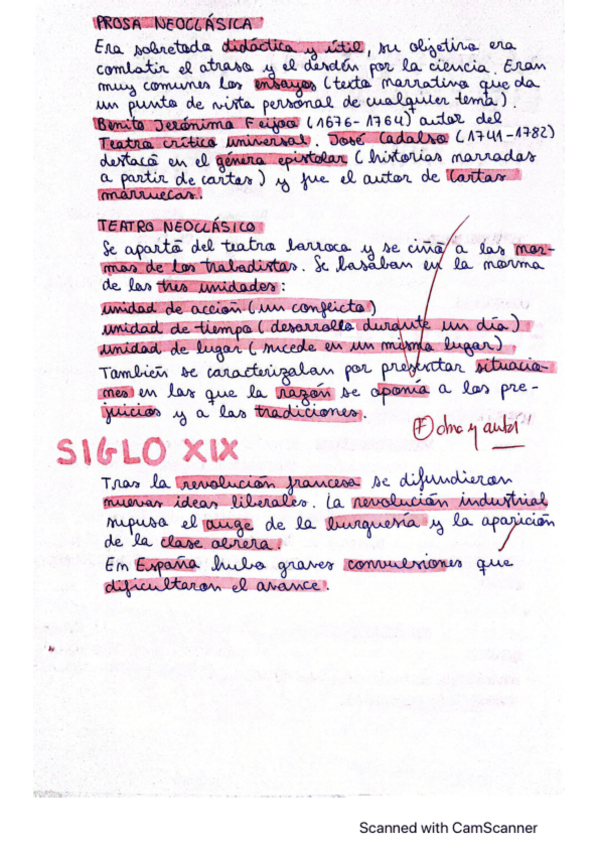 PROSA NEOCLÁSICA
Era sobretodo didáctica y útil, su objetivo era
combatir el atraso y el desdén por la ciencia. Eran
muy comunes los ensayos (texto narrativo que da
un punto de vista personal de cualquier tema).
Benito Jerónimo Feijoo (1676-1764) autor del
Teatro crítico universal. José Cadalso (1741-1782)
destacó en el género epistolar (historias narradas
a partir de cartas) y fue el autor de Cartas
marruecas.
TEATRO NEOCLÁSICO
Se apartó del teatro barroco y se ciñó a las nor-
mas de los tratadistas. Se basaban en la norma
de las tres unidades:
unidad de acción (un conflicto)
unidad de tiempo (desarrollo durante un día)
unidad de lugar (sucede en un mismo lugar)
También se caracterizaban por presentar situacio-
nes en las que la razón se oponía a los pre-
juicios y a las tradiciones.
obra y autor
SIGLO XIX
Tras la revolución francesa se difundieron
nuevas ideas liberales. La revolución industrial
supuso el auge de la burguesía y la aparición
de la clase obrera.
En España hubo graves convulsiones que
dificultaron el avance.
Scanned with CamScanner